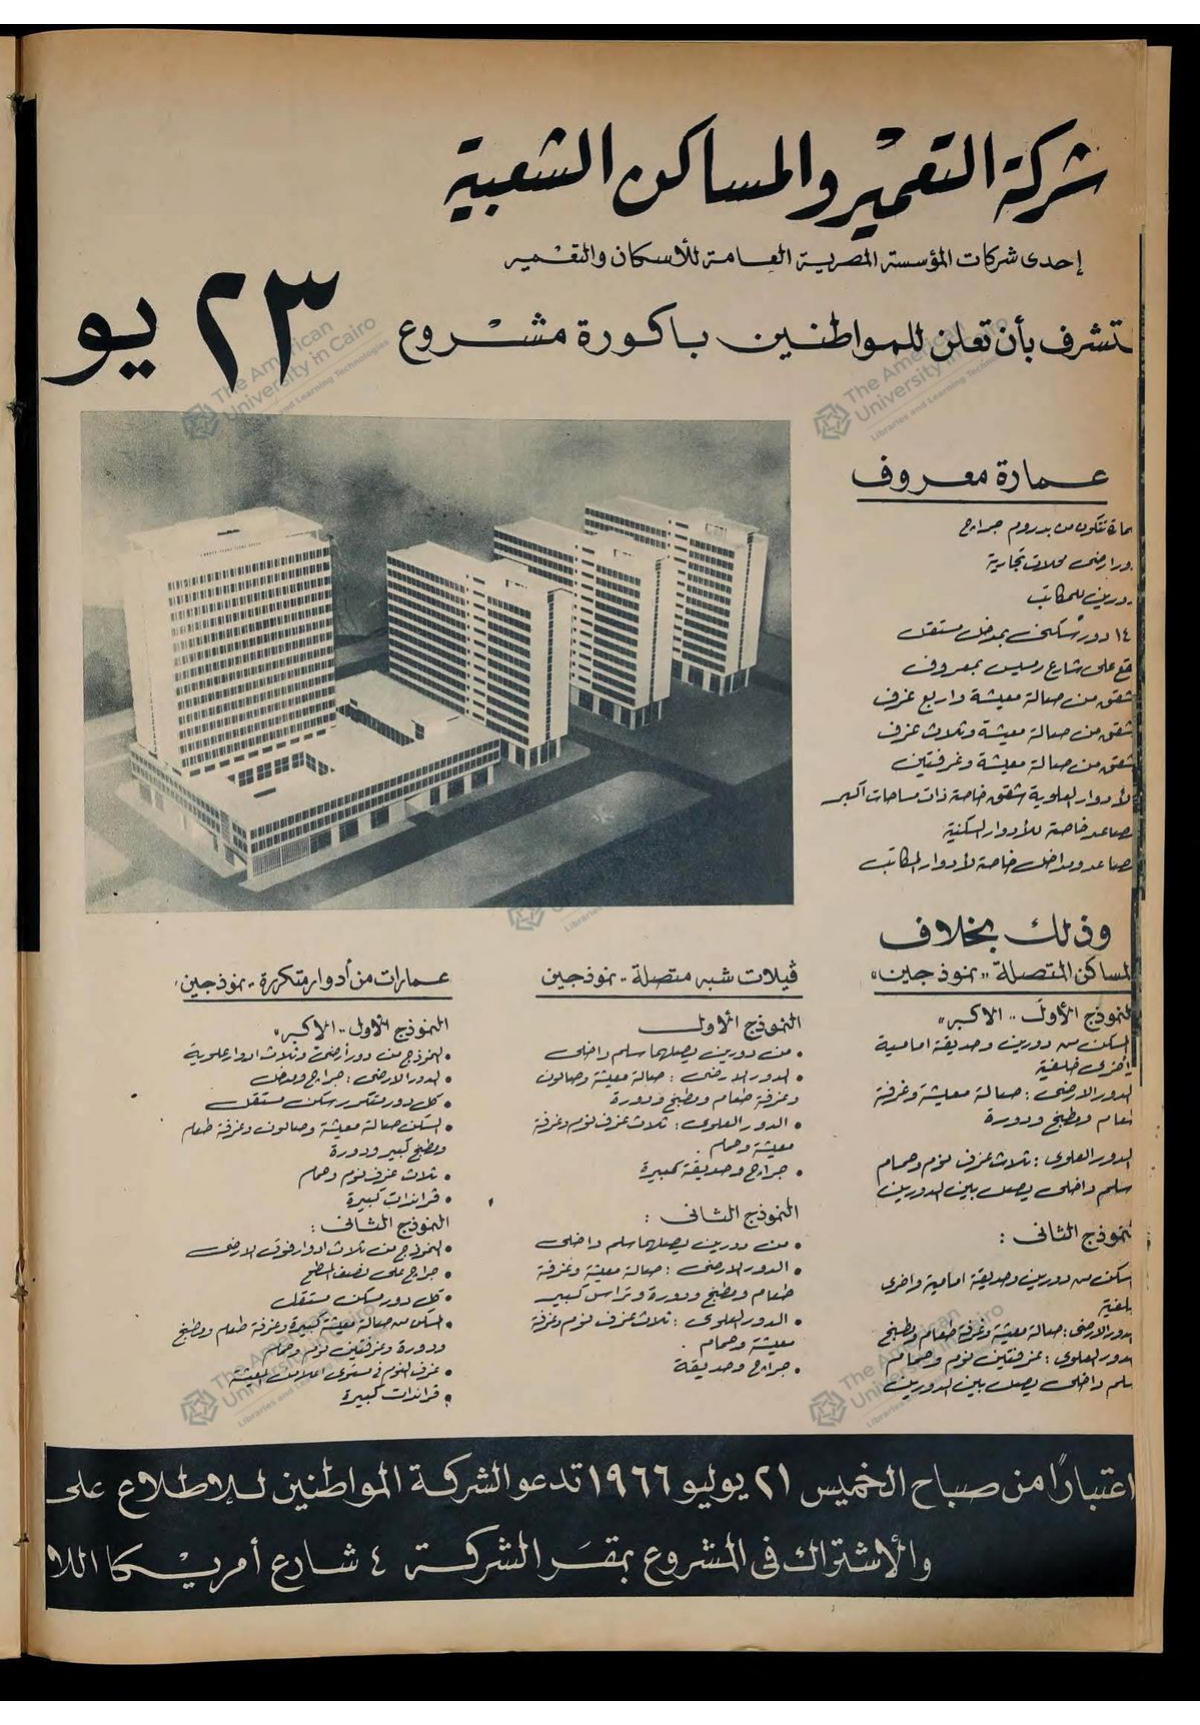 شركة التعمير والمساكن الشعبية
إحدى شركات المؤسسة المصرية العامة للأسكان والتعمير
تتشرف بأن تعلن للمواطنين باكورة مشروع ٢٣ يو
عمارة معروف
تتكون من بدروم جراج
محلات تجارية
للمكاتب
١٤ دور سكنى بمدخل مستقل
على شارع رمسيس بمعروف
شقق من صالة معيشة واربع غرف
شقق من صالة معيشة وثلاث غرف
شقق من صالة معيشة وغرفتين
لأدوار العلوية شقق خاصة ذات مساحات أكبر
خاصة للأدوار السكنية
ومداخل خاصة لأدوار المكاتب
وذلك بخلاف
لمساكن المتصلة "نموذجين"
النموذج الأول .. الاكبر"
السكن من دورين وحديقة امامية
أخرى خلفية
الدور الارضى : صالة معيشة وغرفة
طعام ومطبخ ودورة
الدور العلوى : ثلاث غرف نوم وحمام
سلم داخلى يصل بين الدورين
نموذج الثانى :
سكن من دورين وحديقة امامية واخرى
لدور الارضى : صالة معيشة وغرفة طعام ومطبخ
لدور العلوى : غرفتين نوم وحمام
سلم داخلى يصل بين الدورين
ڤيلات شبه متصلة - نموذجين
النموذج الأول
• من دورين يصلهما سلم داخلى
• الدور الارضى : صالة معيشة وصالون
وغرفة طعام ومطبخ ودورة
• الدور العلوى : ثلاث غرف نوم وغرفة
معيشة وحمام .
• جراج وحديقة كبيرة
النموذج الثانى :
• من دورين يصلهما سلم داخلى
• الدور الارضى : صالة معيشة وغرفة
طعام ومطبخ ودورة وتراس كبير
• الدور العلوى : ثلاث غرف نوم وغرفة
معيشة وحمام .
• جراج وحديقة .
عمارات من أدوار متكررة - نموذجين
النموذج الأول .. الاكبر"
• النموذج من دور أرضى وثلاث ادوار علوية
• الدور الارضى : جراج ومدخل
• كل دور متكرر سكن مستقل
• السكن صالة معيشة وصالون وغرفة طعام
ومطبخ كبير ودورة
• ثلاث غرف نوم وحمام
• ڤراندات كبيرة
النموذج الثانى :
• النموذج من ثلاث ادوار فوق الارضى
• جراج على نصف السطح
• كل دور سكن مستقل
• السكن من صالة معيشة كبيرة وغرفة طعام ومطبخ
ودورة وغرفتين نوم وحمام
• غرف النوم فى مستوى اعلا من المعيشة
• ڤراندات كبيرة
اعتبارًا من صباح الخميس ٢١ يوليو ١٩٦٦ تدعو الشركة المواطنين للاطلاع على
والأشتراك فى المشروع بمقر الشركة ٤ شارع أمريكا اللا
The American
University in Cairo
Libraries and Learning Technologies
The American
University in Cairo
Libraries and Learning Technologies
The American
University in Cairo
The American
University in Cairo
Libraries and Learning Technologies